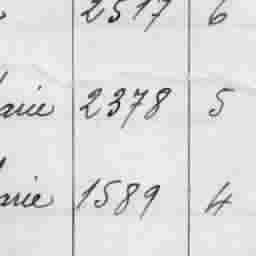 2517 6
arie 2378 5
arie 1589 4